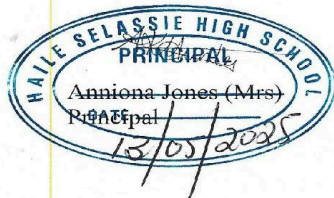 HAILE SELASSIE HIGH SCHOOL
PRINCIPAL
Anniona Jones (Mrs)
DATE
Principal
13/05/2025